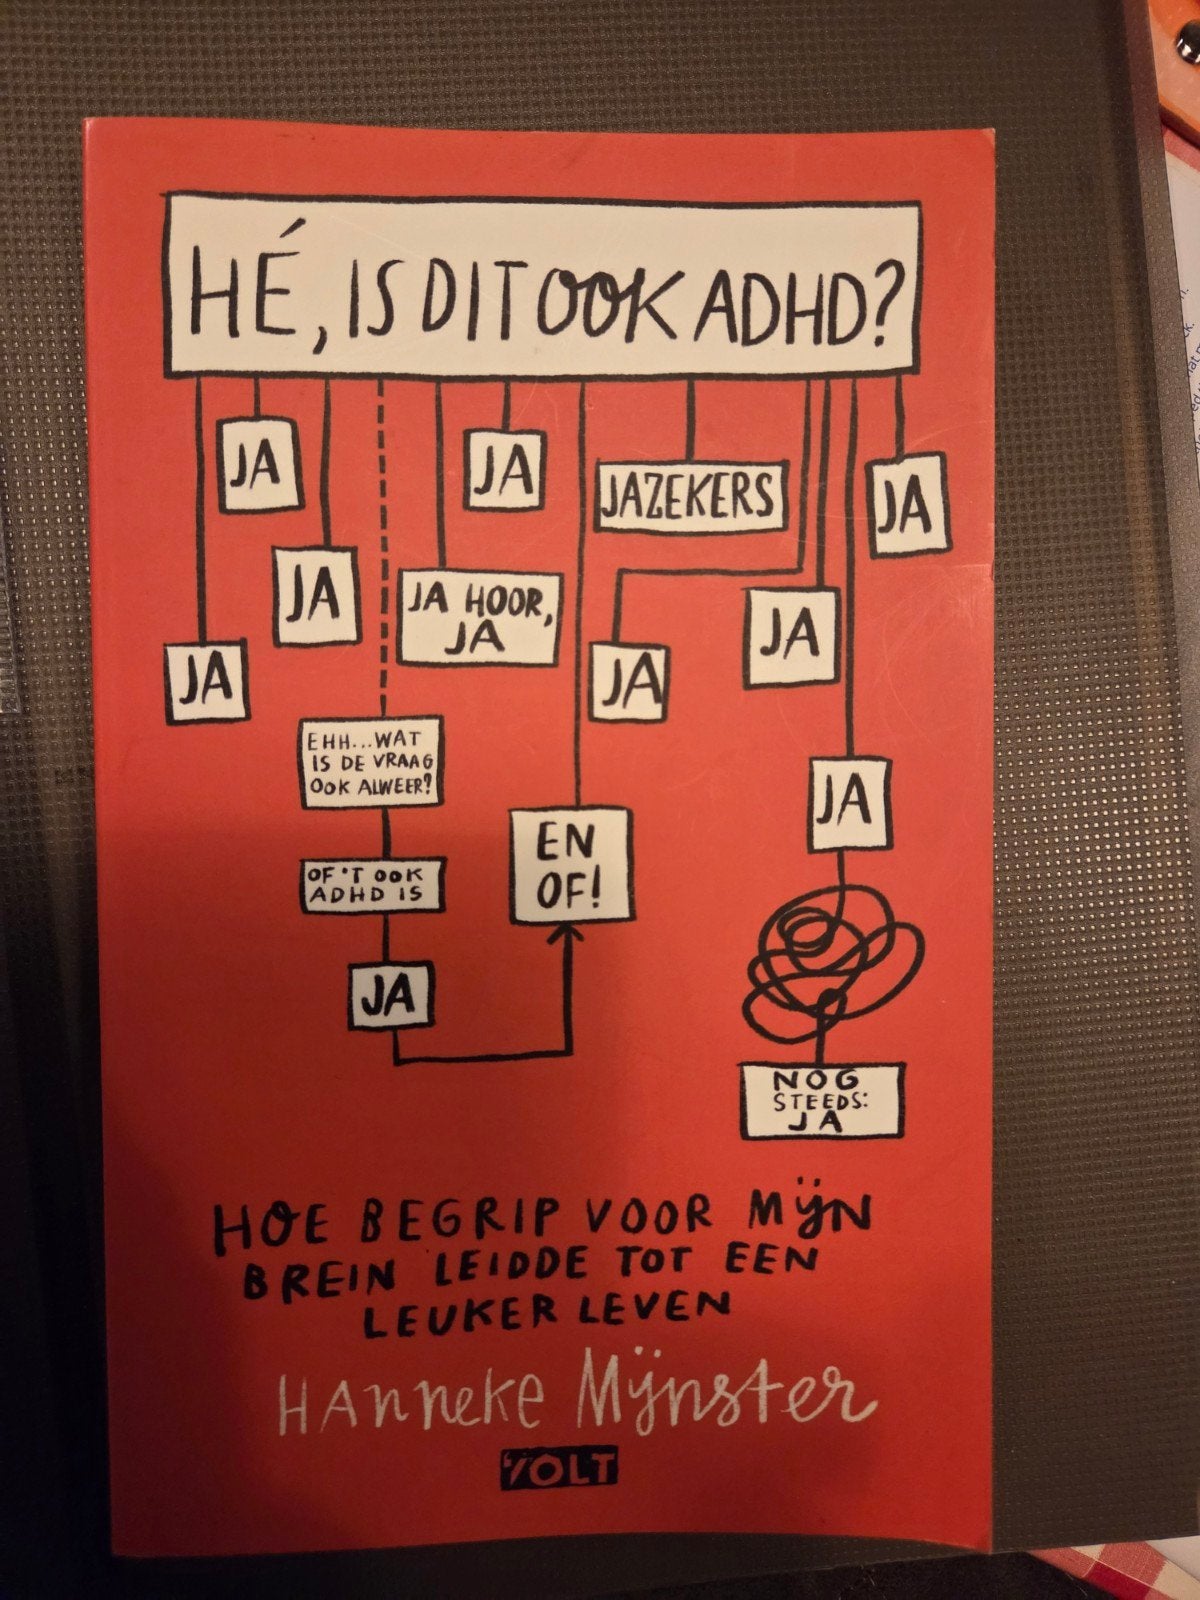 HÉ, IS DIT OOK ADHD?
JA
JA
JAZEKERS
JA
JA
JA HOOR,
JA
JA
JA
JA
EHH...WAT
IS DE VRAAG
OOK ALWEER?
JA
EN
OF!
OF 'T OOK
ADHD IS
JA
NOG
STEEDS:
JA
HOE BEGRIP VOOR MIJN
BREIN LEIDDE TOT EEN
LEUKER LEVEN
HANNEKE MIJNSTER
VOLT